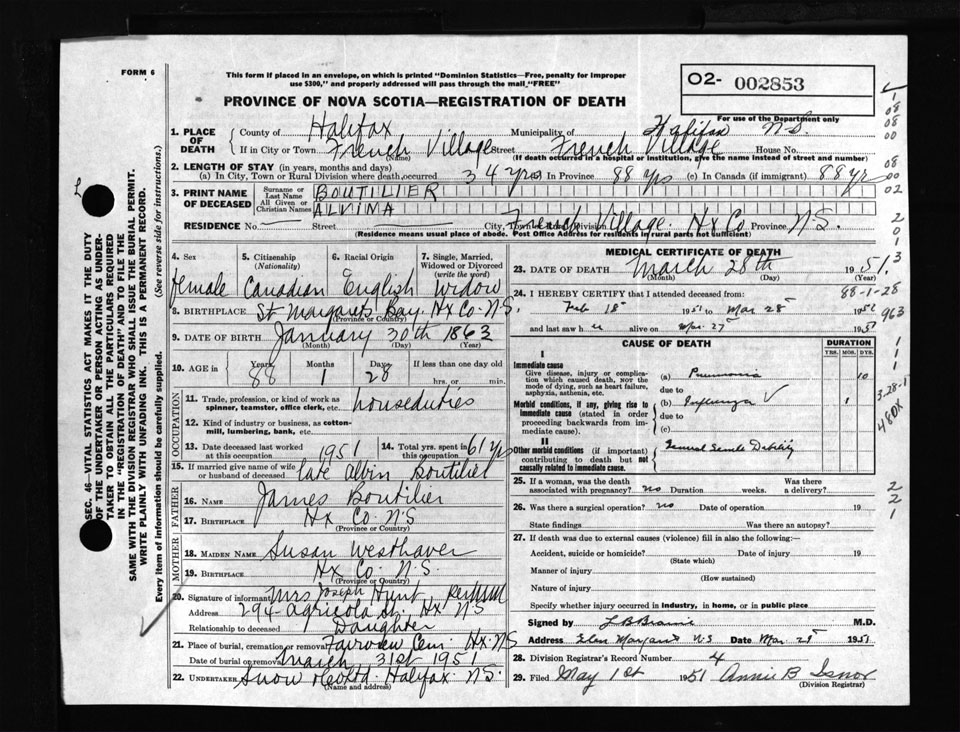 FORM 6
This form if placed in an envelope, on which is printed "Dominion Statistics—Free, penalty for improper
use $300," and properly addressed will pass through the mail "FREE"
O2- 002853
For use of the Department only
PROVINCE OF NOVA SCOTIA—REGISTRATION OF DEATH
1. PLACE OF DEATH County of Halifax Municipality of Halifax N.S.
If in City or Town French Village Street French Village House No.
(Name) (If death occurred in a hospital or institution, give the name instead of street and number)
2. LENGTH OF STAY (in years, months and days)
(a) In City, Town or Rural Division where death occurred 34 yrs In Province 88 yrs (c) In Canada (if immigrant) 88 yr
3. PRINT NAME OF DECEASED Surname or Last Name BOUTILIER
All Given or Christian Names ALVINA
RESIDENCE No. Street French Village Hx Co Province N.S.
(Residence means usual place of abode. Post Office Address for residents in rural parts not sufficient)
4. Sex 5. Citizenship (Nationality) 6. Racial Origin 7. Single, Married, Widowed or Divorced (write the word)
female Canadian English Widow
8. BIRTHPLACE St Margarets Bay Hx Co. N.S.
(Province or Country)
9. DATE OF BIRTH January 30th 1863
(Month) (Day) (Year)
10. AGE in Years Months Days If less than one day
88 1 28 hrs. or min.
OCCUPATION
11. Trade, profession, or kind of work as spinner, teamster, office clerk, etc. houseduties
12. Kind of industry or business, as cotton-mill, lumbering, bank, etc.
13. Date deceased last worked at this occupation 1951 14. Total yrs. spent in this occupation 61 yrs
15. If married give name of wife or husband of deceased late Alvin Boutilier
FATHER
16. NAME James Boutilier
17. BIRTHPLACE Hx Co. N.S
(Province or Country)
MOTHER
18. MAIDEN NAME Susan Westhaver
19. BIRTHPLACE Hx Co. N.S.
(Province or Country)
20. Signature of informant Mrs Joseph Hunt
Address 294 Agricola St. Hx N.S
Relationship to deceased Daughter
21. Place of burial, cremation or removal Fairview Cem. Hx. N.S
Date of burial or removal March 31st 1951
22. UNDERTAKER Snow & Co Ltd. Halifax N.S.
(Name and address)
MEDICAL CERTIFICATE OF DEATH
23. DATE OF DEATH March 28th 1951.
(Month) (Day)
24. I HEREBY CERTIFY that I attended deceased from: 88-1-28
Feb 18 1951 to Mar 28 1951
and last saw h er alive on Mar. 27 1951
CAUSE OF DEATH DURATION
YRS. MOS. DYS.
I
Immediate cause
Give disease, injury or complication which caused death, NOT the mode of dying, such as heart failure, asphyxia, asthenia, etc.
(a) Pneumonia 10
due to
Morbid conditions, if any, giving rise to immediate cause (stated in order proceeding backwards from immediate cause).
(b) Influenza 1
due to
(c)
II
Other morbid conditions (if important) contributing to death but not causally related to immediate cause.
General Senile Debility
25. If a woman, was the death associated with pregnancy? no Duration weeks. Was there a delivery?
26. Was there a surgical operation? no Date of operation 19
State findings Was there an autopsy?
27. If death was due to external causes (violence) fill in also the following:—
Accident, suicide or homicide? Date of injury 19
(State which)
Manner of injury
(How sustained)
Nature of injury
Specify whether injury occurred in industry, in home, or in public place
Signed by M.D.
Address Glen Margaret N.S Date Mar. 28 1951
28. Division Registrar's Record Number 4
29. Filed May 1st 1951 Annie B Isnor
(Division Registrar)
SEC. 46—VITAL STATISTICS ACT MAKES IT THE DUTY
OF THE UNDERTAKER OR PERSON ACTING AS UNDER-
TAKER TO OBTAIN ALL THE PARTICULARS REQUIRED
IN THE "REGISTRATION OF DEATH" AND TO FILE THE
SAME WITH THE DIVISION REGISTRAR WHO SHALL ISSUE THE BURIAL PERMIT.
WRITE PLAINLY WITH UNFADING INK. THIS IS A PERMANENT RECORD.
Every item of information should be carefully supplied. (See reverse side for instructions.)
1
08
08
00
08
00
02
2
0
1
3
963
1
1
1
3-28-1
480X
2
2
1